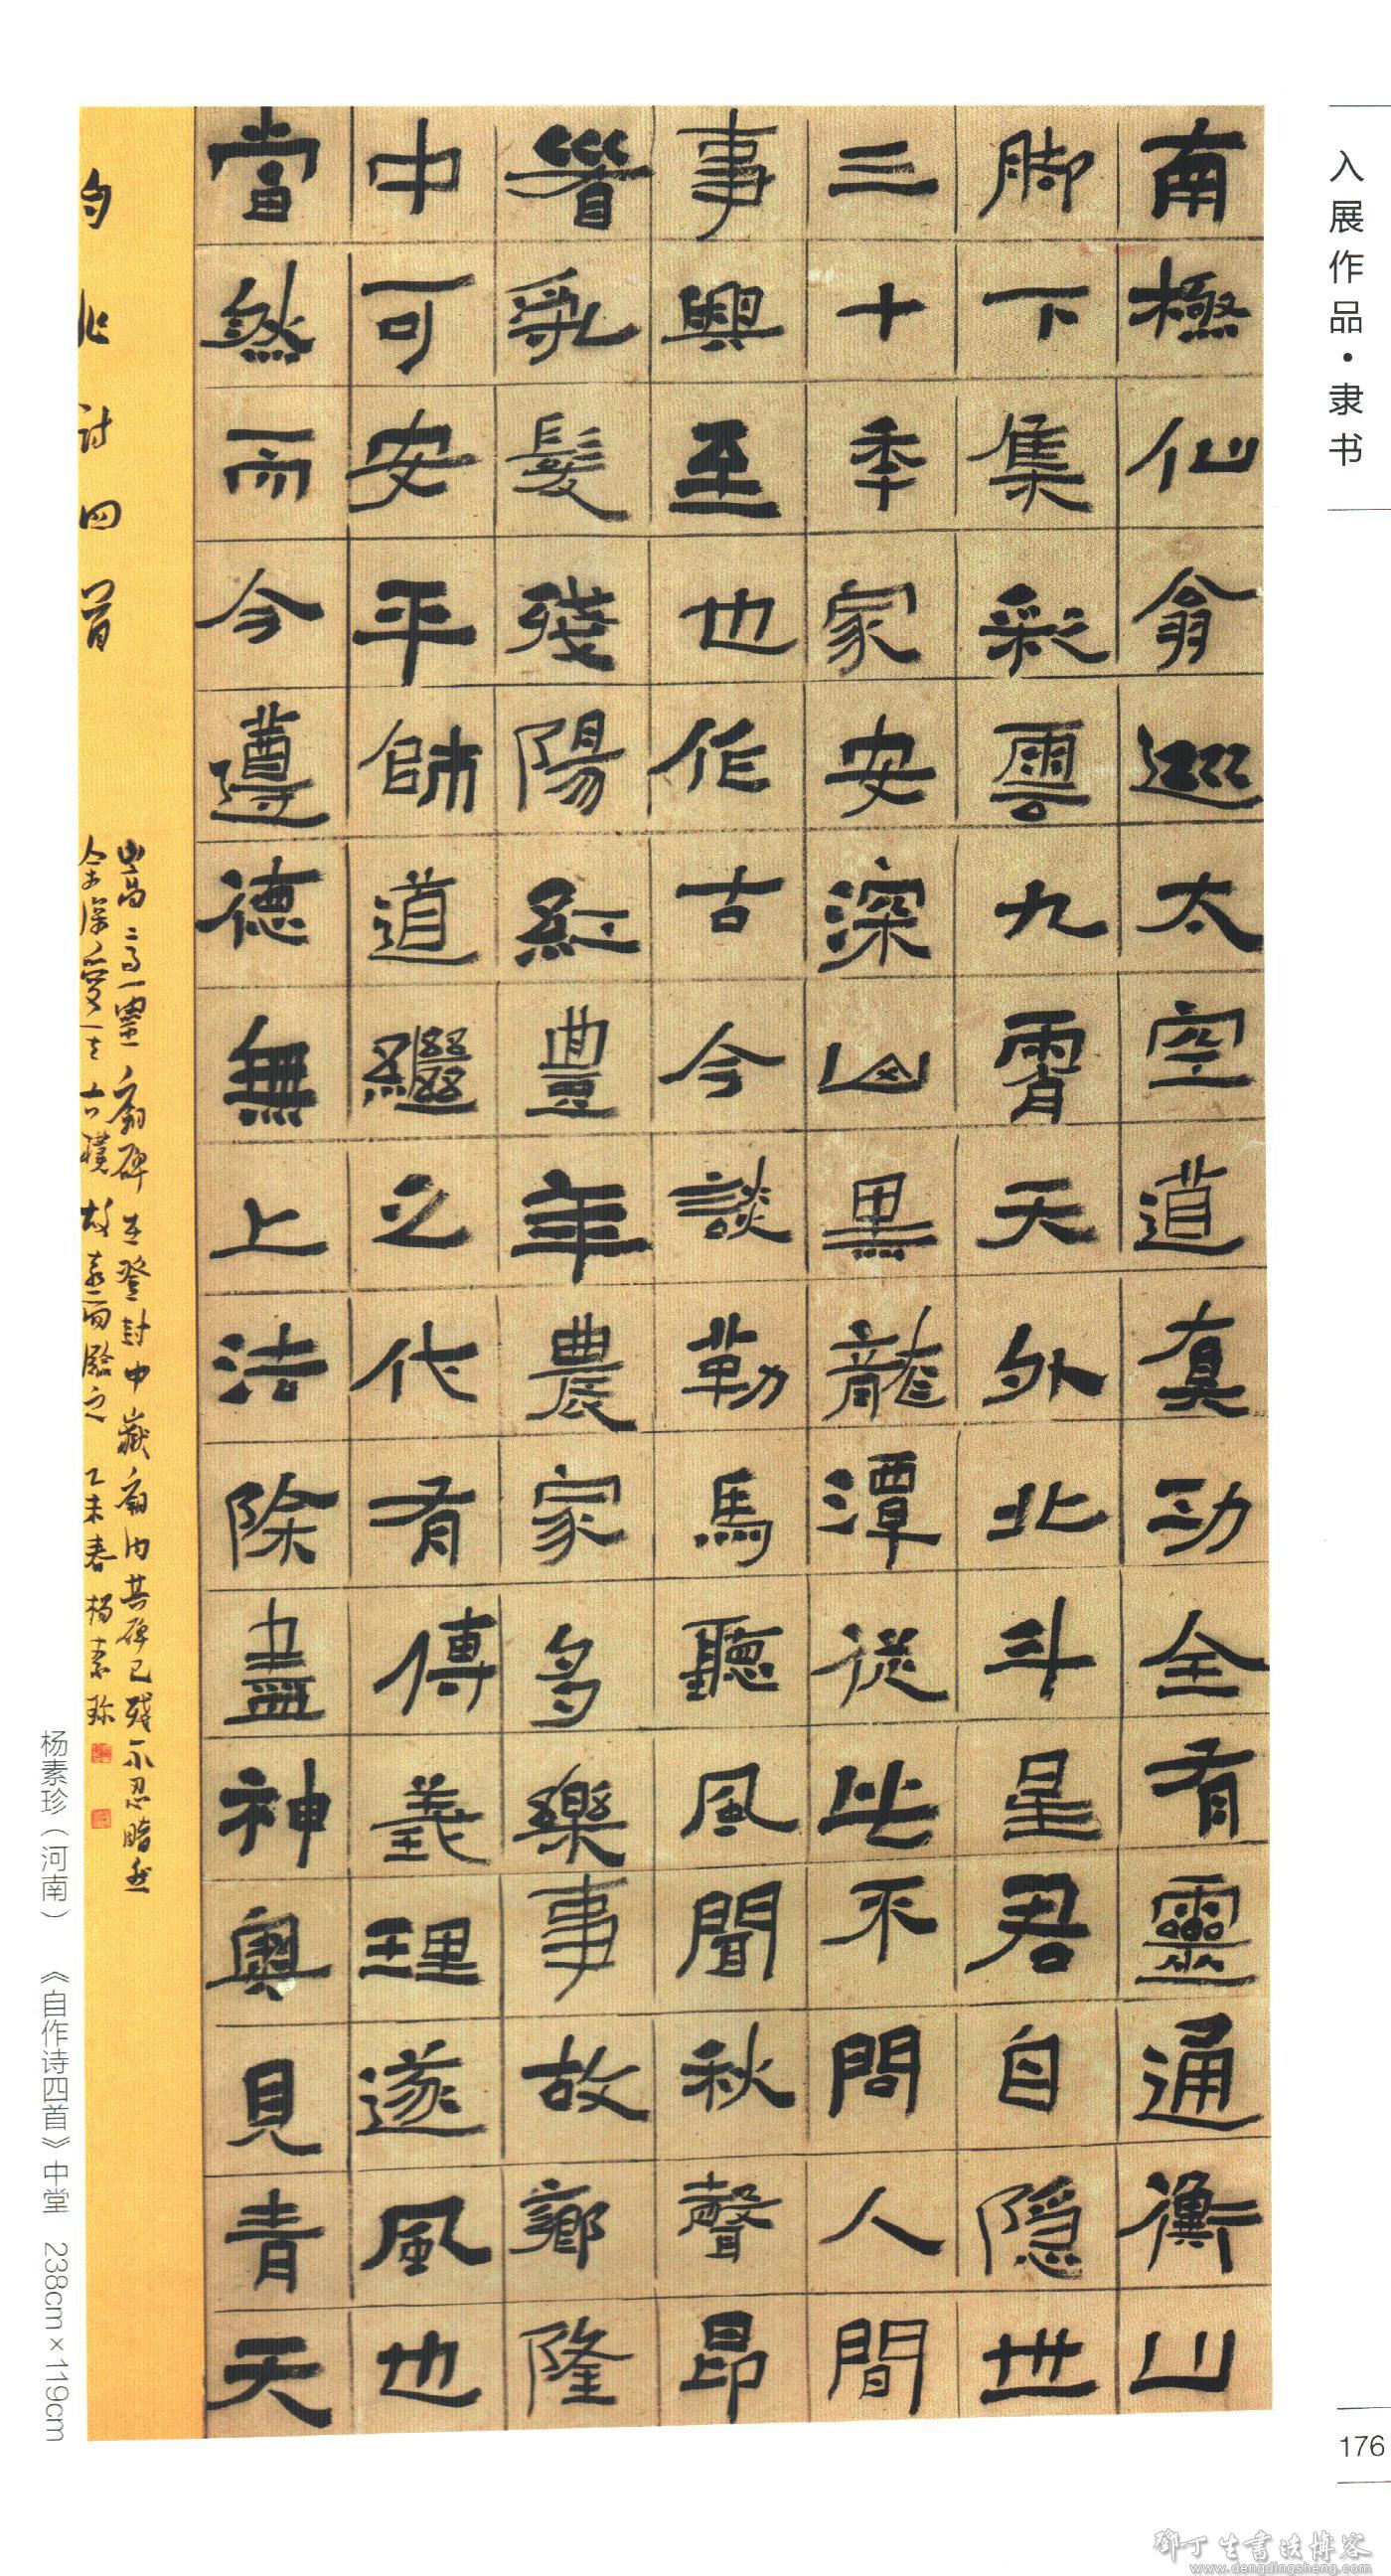 入展作品·隶书
南極仙翁巡太空道真功全有靈通衡山
脚下集彩雲九霄天外北斗星君自隐世
三十季家安深山黑龍潭從此不問人間
事興至也作古今談勒馬聽風聞秋聲昂
着乳髮殘陽紅豊年農家多樂事故鄉隆
中可安平師道繼之代有傳義理遂風也
當然而今遵德無上法除盡神奧見青天
自作詩四首
嵩高靈廟碑在登封中嶽廟内其碑已残不忍睹
余深愛其古樸故臨之乙未春楊素珍
杨素珍（河南）　《自作诗四首》中堂　238cm×119cm
176
邓丁生书法博客
www.dengdingsheng.com